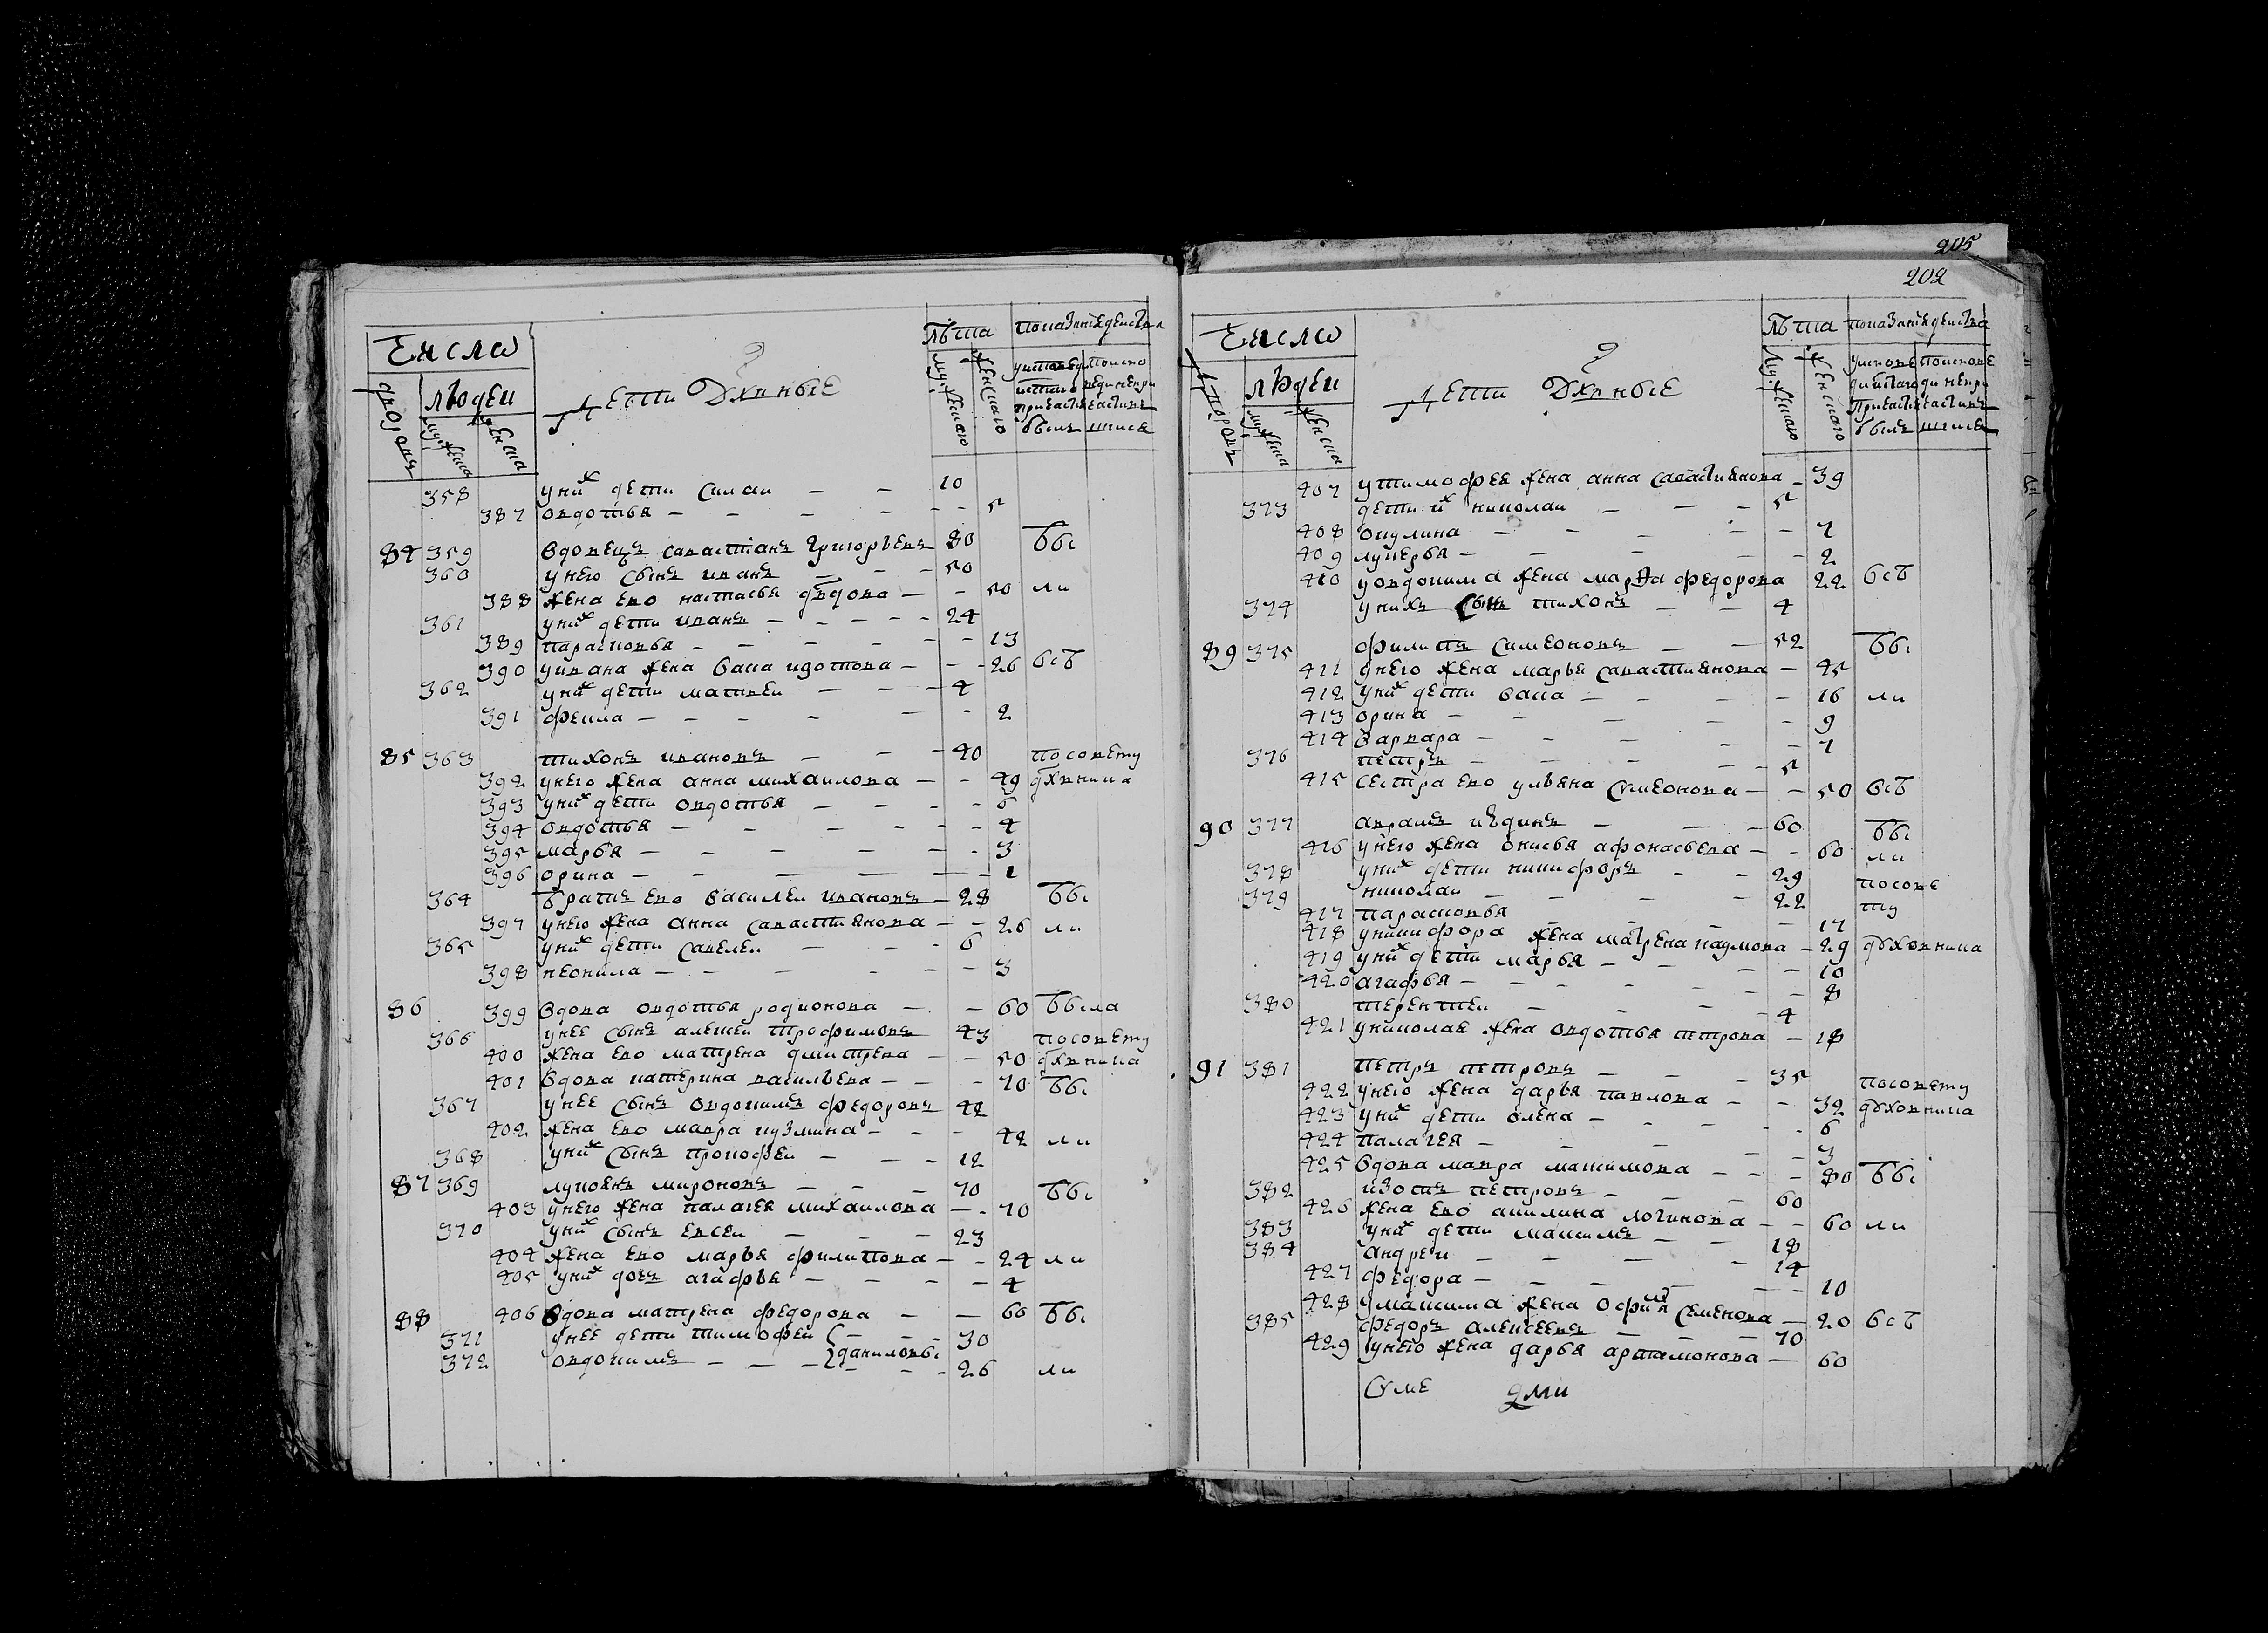 Число
дворовъ
людеи
мужеска
женска
дети Дхвные
лѣта
мужескаго
женскаго
358 у них дети Силаи — — 10
387 овдотья — — — — — 5
84 359 вдовецъ савастянъ григорьевъ 80 бы
360 у него сынъ иванъ — — — 50
388 жена ево настасья дѣдова — — 50 ли
361 у них дети иванъ — — — — 24
389 парасковья — — — — — 13
390 у ивана жена васа изотова — — — 26 всѣ
362 у них дети матвеи — — — 4
391 фекла — — — — — 2
85 363 тихонъ ивановъ — — — 40 по совету
392 у него жена анна михаилова — — 49 дхвника
393 у них дети овдотья — — — — 6
394 овдотья — — — — — — 4
395 марья — — — — — — 3
396 орина — — — — — — 1
364 братъ ево василеи ивановъ — 28 бы
397 у него жена анна савастиянова — — 26 ли
365 у них дети савелеи — — — 6
398 неонила — — — — — — 3
86 399 вдова овдотья родионова — — 60 была
366 у нее сынъ алексеи трофимовъ 43 по совету
400 жена ево матрена дмитрева — — 50 дхвника
401 вдова катерина васильева — — — 70 бы
367 у нее сынъ овдокимъ федоровъ 42
402 жена ево мавра кузмина — — — 42 ли
368 у них сынъ прокофеи — — — 12
87 369 лукоянъ мироновъ — — — 70 бы
403 у него жена палагея михаилова — — 70
370 у них сынъ евсеи — — — 23
404 жена ево марья филипова — — 24 ли
405 у них дочь агафья — — — — 4
88 406 вдова матрена федорова — — 60 бы
371 у нее дети тимофеи — — — 30
372 овдокимъ — — — даниловы — — 26 ли
205
202
Число
дворовъ
людеи
мужеска
женска
дети Дхвные
лѣта
мужескаго
женскаго
407 у тимофея жена анна савастиянова — 39
373 дети их николаи — — — 5
408 окулина — — — — — 7
409 лукерья — — — — — 2
410 у овдокима жена марѳа федорова 22 всѣ
374 у нихъ сынъ тихонъ — — 4
89 375 филипъ симеоновъ — — 52 бы
411 у него жена марья савастиянова — 45
412 у них дети васа — — — — 16 ли
413 орина — — — — — 9
414 варвара — — — — — 7
376 петръ — — — — — 5
415 сестра ево ульяна симеонова — — 50 всѣ
90 377 аврамъ — — — 60 бы
416 у него жена онисья афонасьева — — 60 ли
378 у них дети никифоръ — — 29 по сове
379 николаи — — — — 22 ту
417 парасковья — — — — 17
418 у никифора жена матрена наумова — 29 дѣховника
419 у них дети марья — — — — 10
420 агафья — — — — — — 8
380 терентеи — — — — 4
421 у николая жена овдотья петрова — 18
91 381 петръ петровъ — — — 35 по совету
422 у него жена дарья павлова — — 32 дѣховника
423 у них дети олена — — — — 6
424 палагея — — — — — 3
425 вдова мавра макимова — — — 80 бы
382 изотъ петровъ — — — 60
426 жена ево акилина логинова — — 60 ли
383 у них дети максимъ — — 18
384 андреи — — — — 14
427 федора — — — — — — 10
428 у максима жена офимия семенова — 20 всѣ
385 федоръ алексеевъ — — — 70
429 у него жена дарья артамонова — 60